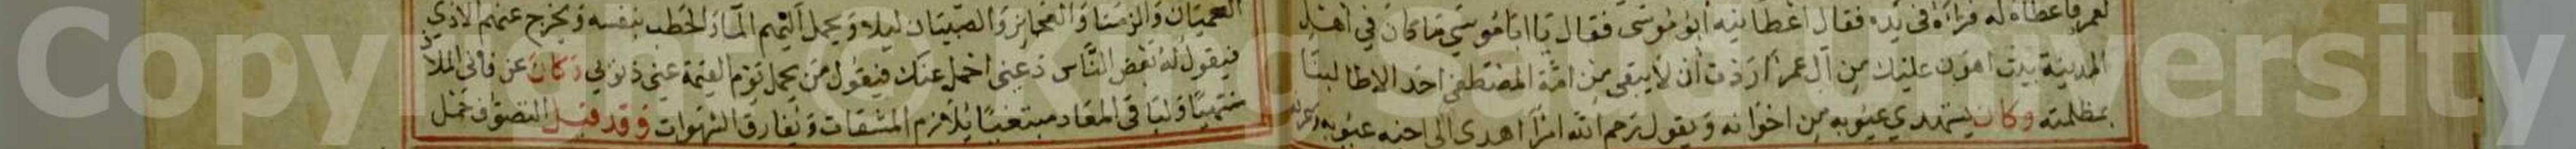 لعمر فاعطاه له فراه في يده فقال اعطانيه ابو موسى فقال يا ابا موسى ما كان في اهل
المدينة بيت اهون عليك من آل عمر اردت ان لا يبقى من امة المصطفى احد الا طالبنا
بمظلمته وكان يستهدي عيوبه من اخوانه ويقول رحم الله امرأ اهدى الى اخيه عيوبه
العميان والزمنا والعجايز والصبيان ليلا ويحمل اليهم الماء والحطب بنفسه ويخرج عنهم الاذى
فيقول له بعض الناس دعني احمل عنك فيقول من يحمل يوم القيمة عني ذنوبي وكان عن فاني الملا
منتهيا ولباقي المعاد مبتغيا يلازم المشقات ويفارق الشهوات وقد قيل التصوف حمل
Copyright © King University